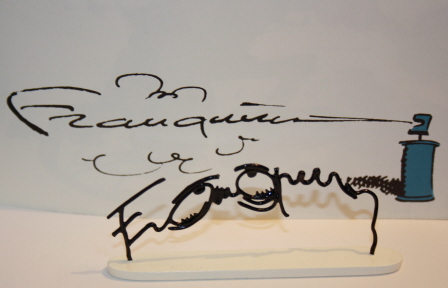 Franquin
Franquin